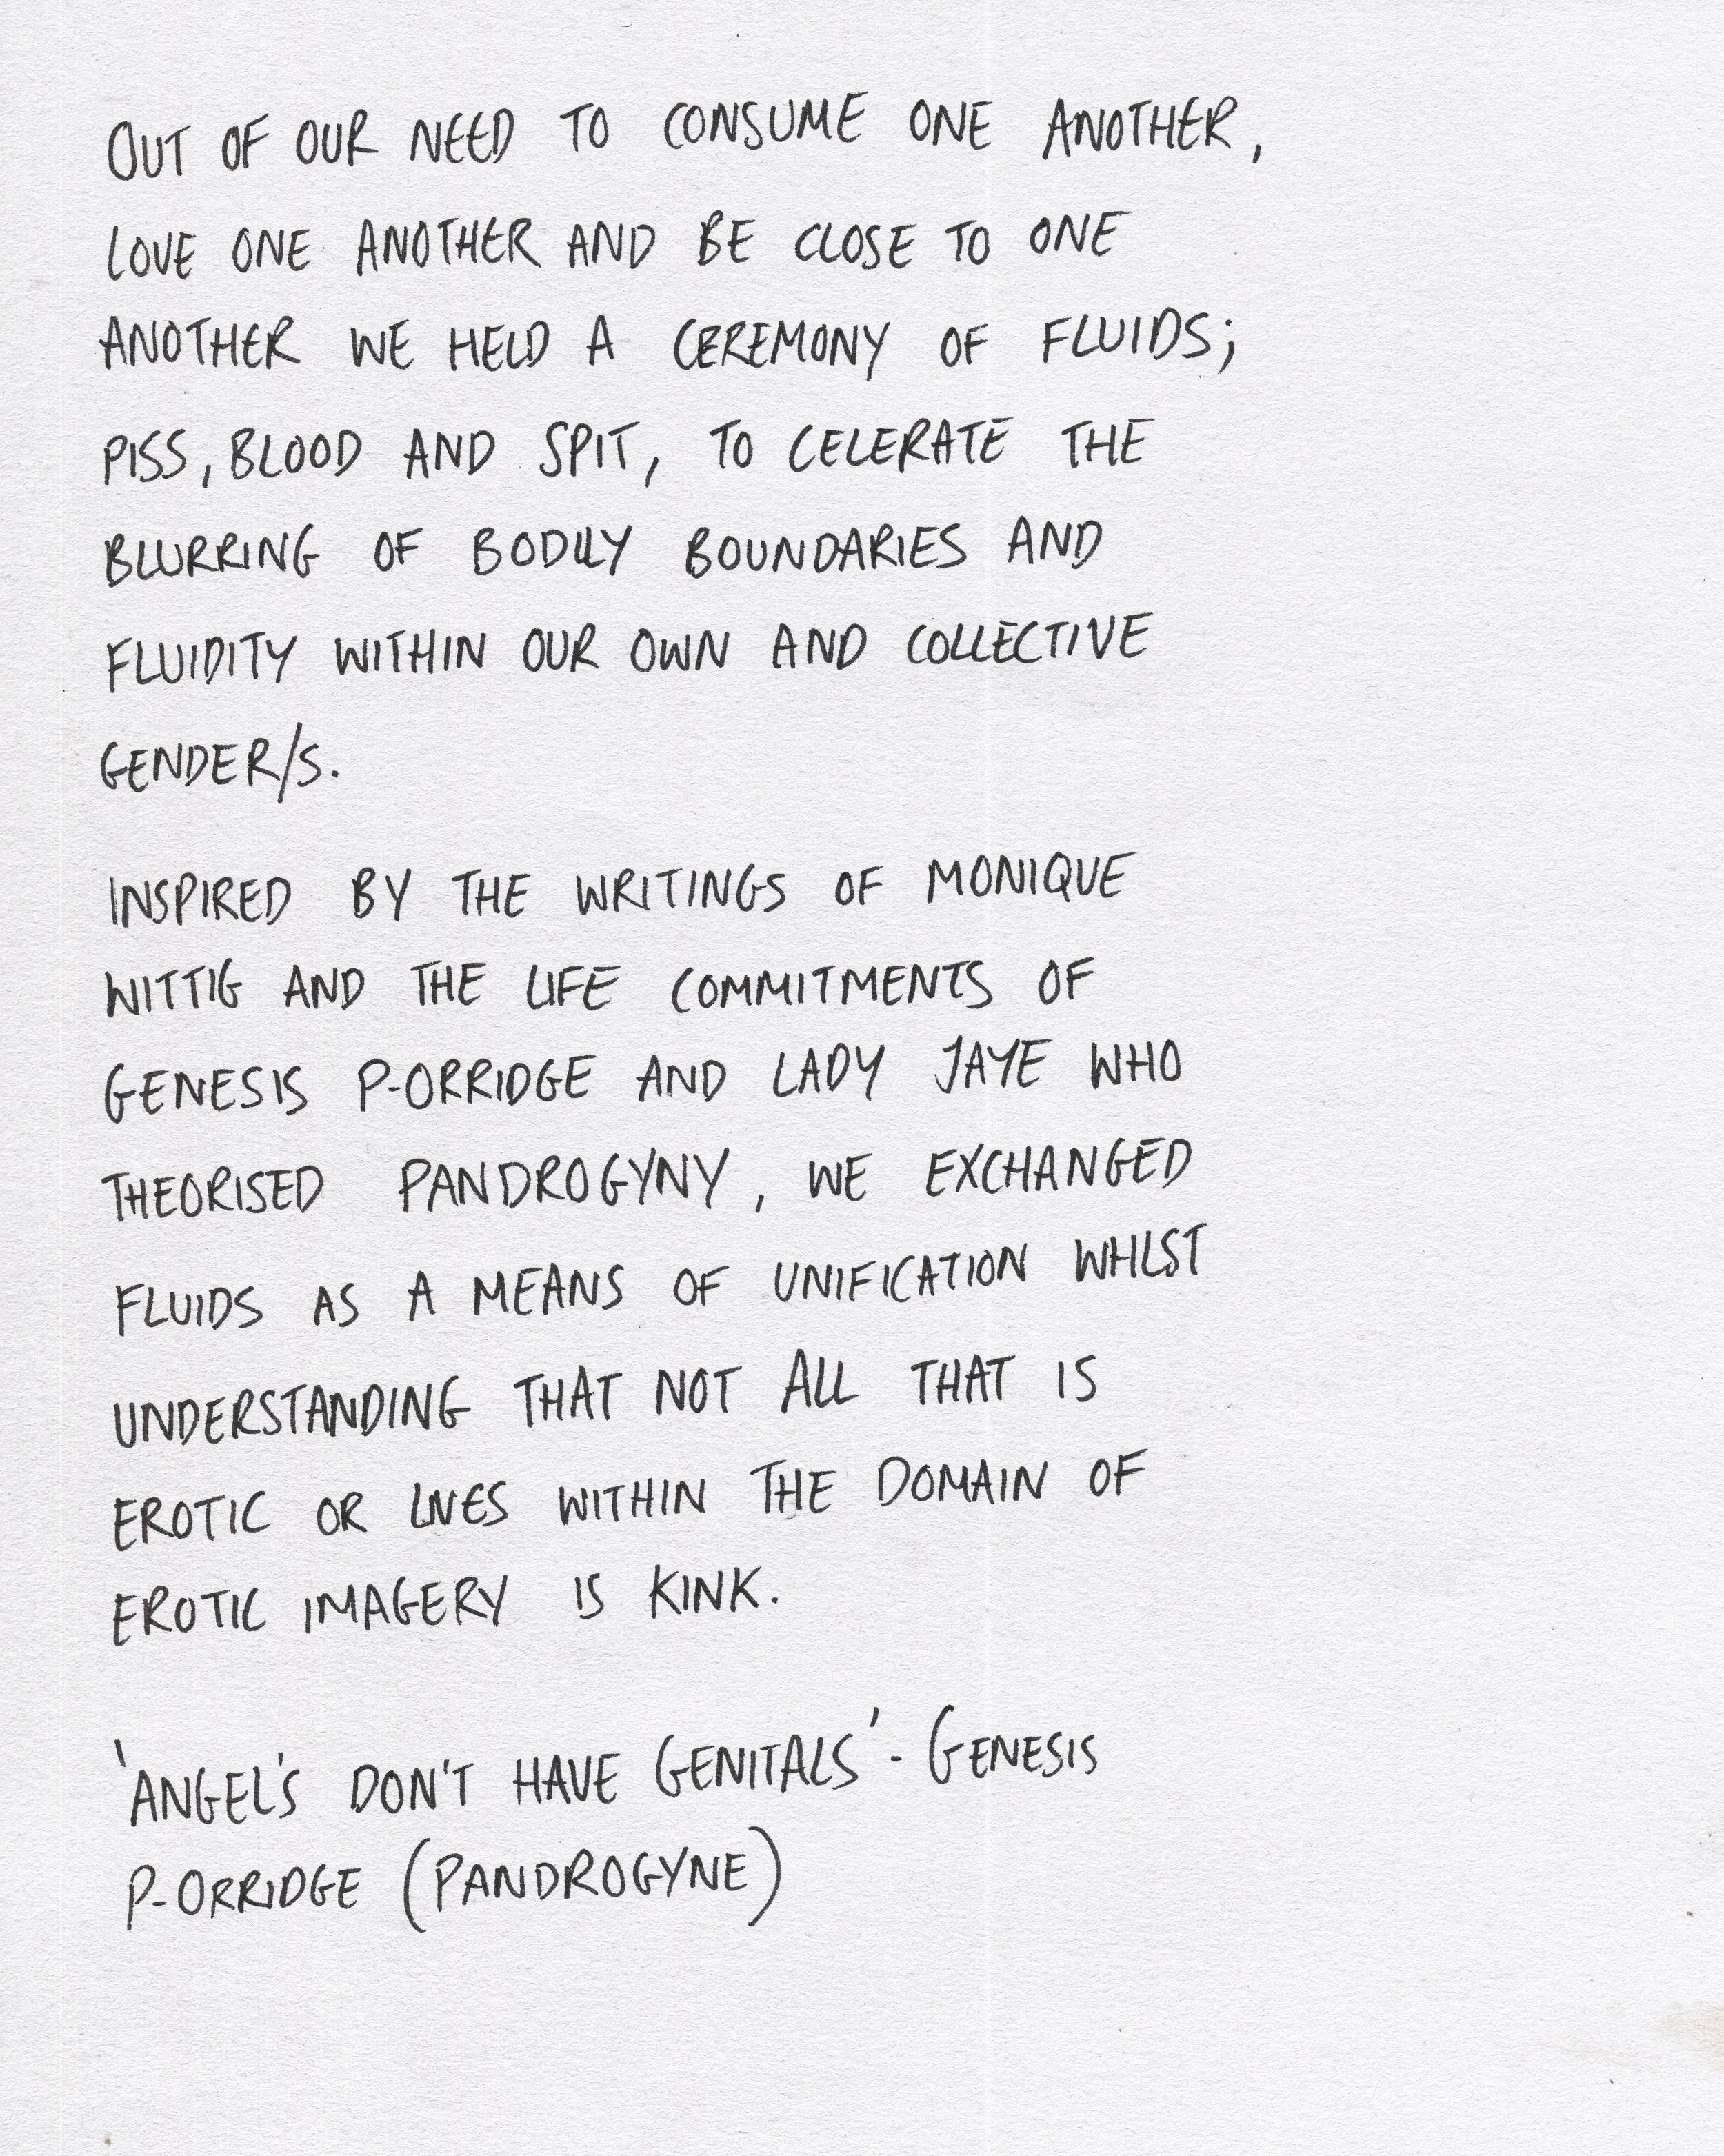 OUT OF OUR NEED TO CONSUME ONE ANOTHER,
LOVE ONE ANOTHER AND BE CLOSE TO ONE
ANOTHER WE HELD A CEREMONY OF FLUIDS;
PISS, BLOOD AND SPIT, TO CELERATE THE
BLURRING OF BODILY BOUNDARIES AND
FLUIDITY WITHIN OUR OWN AND COLLECTIVE
GENDER/S.
INSPIRED BY THE WRITINGS OF MONIQUE
WITTIG AND THE LIFE COMMITMENTS OF
GENESIS P-ORRIDGE AND LADY JAYE WHO
THEORISED PANDROGYNY, WE EXCHANGED
FLUIDS AS A MEANS OF UNIFICATION WHLST
UNDERSTANDING THAT NOT ALL THAT IS
EROTIC OR LIVES WITHIN THE DOMAIN OF
EROTIC IMAGERY IS KINK.
'ANGEL'S DON'T HAVE GENITALS' - GENESIS
P-ORRIDGE (PANDROGYNE)